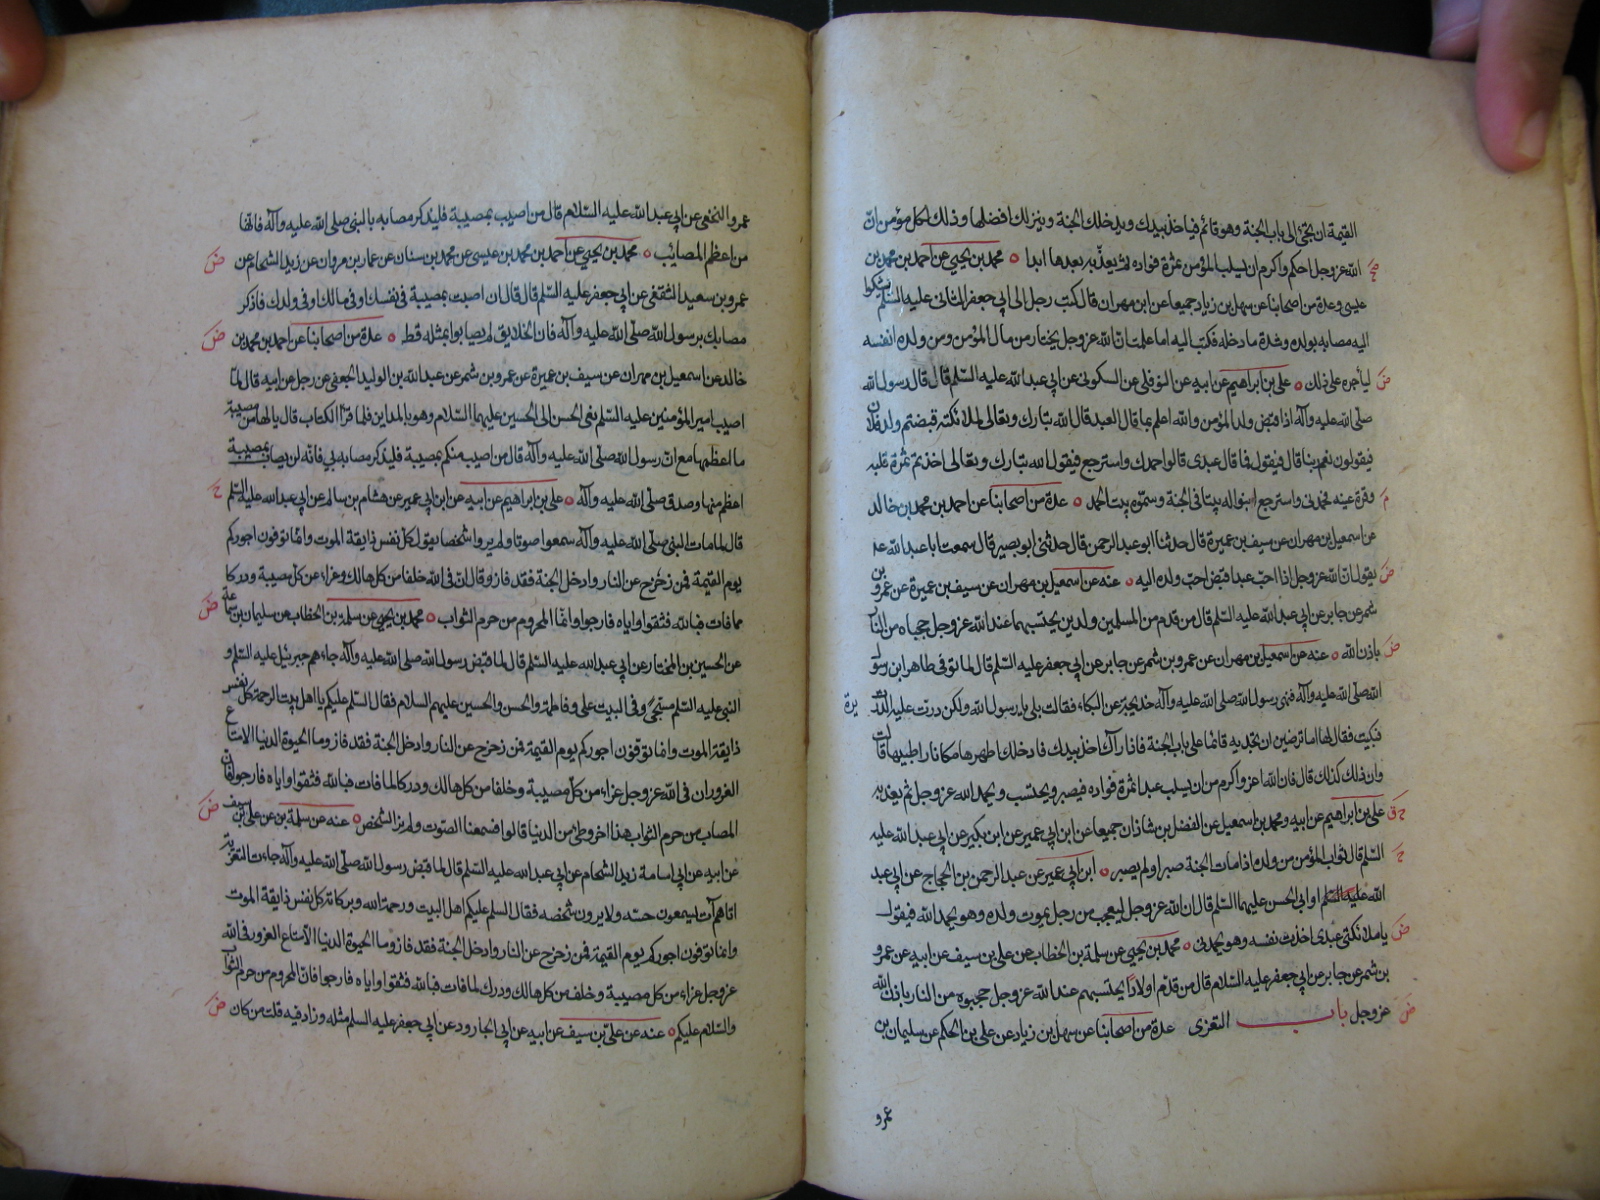 القيمة ان يجئ الى باب الجنة وهو قائم فياخذ بيدك ويدخلك الجنة وينزلك افضلها وذلك لكل مؤمن انّ
الله عز وجل احكم واكرم ان يسلب المؤمن ثمرة فواده ثم يعذّبه بعدها ابدا ٥ محمد بن يحيى عن احمد بن محمد بن
عيسى وعدة من اصحابنا عن سهل بن زياد جميعا عن ابن مهران قال كتب رجل الى ابي جعفر الثانى عليه السّلم يشكوا
اليه مصابه بولده وشدة ما دخله فكتب اليه اما علمت انّ الله عز وجل يختار من مال المؤمن ومن ولده انفسه
ليأجره على ذلك ٥ على بن ابراهيم عن ابيه عن النوفلى عن السكونى عن ابي عبد الله عليه السّلم قال قال رسول الله
صلى الله عليه وآله اذا قبض ولد المؤمن والله اعلم بما قال العبد قال الله تبارك وتعالى لملائكته قبضتم ولد فلان
فيقولون نعم ربنا قال فيقول فما قال عبدى قالوا حمدك واسترجع فيقول الله تبارك وتعالى اخذتم ثمرة قلبه
وقرة عينه فحمدنى واسترجع ابنوا له بيتا فى الجنة وسمّوه بيت الحمد ٥ عدة من اصحابنا عن احمد بن محمد بن خالد
عن اسمعيل بن مهران عن سيف بن عميرة قال حدثنا ابو عبد الرحمن قال حدثنى ابو بصير قال سمعت ابا عبد الله
يقول ان الله عز وجل اذا احبّ عبدا قبض احبّ ولده اليه ٥ عنه عن اسمعيل بن مهران عن سيف بن عميرة عن عمرو بن
شمر عن جابر عن ابي عبد الله عليه السّلم قال من قدم من المسلمين ولدين يحتسبهما عند الله عز وجل حجباه من النار
باذن الله ٥ عنه عن اسمعيل بن مهران عن عمرو بن شمر عن جابر عن ابي جعفر عليه السّلم قال لما توفى طاهر ابن رسول
الله صلّى الله عليه وآله نهى رسول الله صلى الله عليه وآله خديجة عن البكاء فقالت بلى يا رسول الله ولكن درّت عليه الدريرة
فبكيت فقال لها اما ترضين ان تجديه قائما على باب الجنة فاذا رآك اخذ بيدك فادخلك اطهرها مكانا واطيبها قالت
وان ذلك كذلك قال فان الله اعز واكرم من ان يسلب عبدا ثمرة فواده فيصبر ويحتسب ويحمد الله عز وجل ثم يعذبه
على بن ابراهيم عن ابيه ومحمد بن اسمعيل عن الفضل بن شاذان جميعا عن ابن ابي عمير عن ابن بكير عن ابي عبد الله عليه
السّلم قال ثواب المؤمن من ولده اذا مات الجنة صبر او لم يصبر ٥ ابن ابي عمير عن عبد الرحمن بن الحجاج عن ابي عبد
الله عليه السّلم او ابي الحسن عليهما السّلم قال ان الله عز وجل ليعجب من رجل يموت ولده وهو يحمد الله فيقول
يا ملائكتى عبدى اخذت نفسه وهو يحمدنى ٥ محمد بن يحيى عن سلمة بن الخطاب عن على بن سيف عن ابيه عن عمرو
بن شمر عن جابر عن ابي جعفر عليه السّلام قال من قدّم اولادًا يحتسبهم عند الله عز وجل حجبوه من النار باذن الله
عز وجل باب التعزى عدة من اصحابنا عن سهل بن زياد عن على بن الحكم عن سليمان بن
عمرو
عمرو النخعى عن ابي عبد الله عليه السّلام قال من اصيب بمصيبة فليذكر مصابه بالنبى صلى الله عليه وآله فانّها
من اعظم المصائب ٥ محمد بن يحيى عن احمد بن محمد بن عيسى عن محمد بن سنان عن عمار بن مروان عن زيد الشحام عن
عمرو بن سعيد الثقفى عن ابي جعفر عليه السّلم قال قال ان اصبت بمصيبة فى نفسك او فى مالك او فى ولدك فاذكر
مصابك برسول الله صلّى الله عليه وآله فان الخلايق لم يصابوا بمثله قط ٥ عدة من اصحابنا عن احمد بن محمد بن
خالد عن اسمعيل بن مهران عن سيف بن عميرة عن عمرو بن شمر عن عبد الله بن الوليد الجعفى عن رجل عن ابيه قال لمّا
اصيب امير المؤمنين عليه السّلم نعى الحسن الى الحسين عليهما السّلام وهو بالمداين فلما قرأ الكتاب قال يا لها من مصيبة
ما اعظمها مع انّ رسول الله صلى الله عليه وآله قال من اصيب منكم بمصيبة فليذكر مصابه بي فانّه لن يصاب بمصيبة
اعظم منها وصدق صلّى الله عليه وآله ٥ على بن ابراهيم عن ابيه عن ابن ابي عمير عن هشام بن سالم عن ابي عبد الله عليه السّلم
قال لما مات النبى صلّى الله عليه وآله سمعوا صوتا ولم يروا شخصا يقول كل نفس ذايقة الموت وانّما توفون اجوركم
يوم القيمة فمن زحزح عن النار وادخل الجنة فقد فاز وقال انّ فى الله خلفا من كل هالك وعزاء عن كل مصيبة ودركا
مما فات فبالله فثقوا واياه فارجوا وانّما المحروم من حرم الثواب ٥ محمد بن يحيى عن سلمة بن الخطاب عن سليمان بن سماعة
عن الحسين بن المختار عن ابي عبد الله عليه السّلم قال لما قبض رسول الله صلى الله عليه وآله جاءهم جبرئيل عليه السّلم و
النبى عليه السّلم مسجّى وفى البيت على وفاطمة والحسن والحسين عليهم السلام فقال السّلم عليكم يا اهل بيت الرحمة كل نفس
ذايقة الموت وانما توفون اجوركم يوم القيمة فمن زحزح عن النار وادخل الجنة فقد فاز وما الحيوة الدنيا الا متاع
الغرور ان فى الله عز وجل عزاء من كلّ مصيبة وخلفا من كل هالك ودركا لما فات فبالله فثقوا واياه فارجوا فان
المصاب من حرم الثواب هذا اخر وطئ من الدنيا قالوا فسمعنا الصّوت ولم نر الشخص ٥ عنه عن سلمة عن على بن سيف
عن ابيه عن ابي اسامة زيد الشحام عن ابي عبد الله عليه السّلم قال لما قبض رسول الله صلّى الله عليه وآله جاءت التعزية
اتاهم آت يسمعون حسّه ولا يرون شخصه فقال السلم عليكم اهل البيت ورحمة الله وبركاته كل نفس ذايقة الموت
وانما توفون اجوركم يوم القيمة فمن زحزح عن النار وادخل الجنة فقد فاز وما الحيوة الدنيا الا متاع الغرور فى الله
عز وجل عزاء من كل مصيبة وخلف من كل هالك ودرك لما فات فبالله فثقوا واياه فارجوا فانّ المحروم من حرم الثواب
والسّلام عليكم ٥ عنه عن على بن سيف عن ابيه عن ابي الجارود عن ابي جعفر عليه السلم مثله وزاد فيه قلت من كان